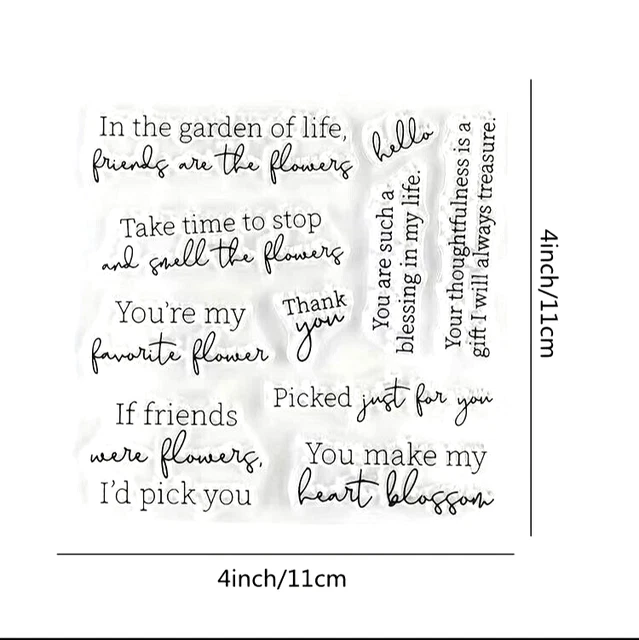 In the garden of life,
friends are the flowers
hello
Take time to stop
and smell the flowers
You are such a
blessing in my life.
Your thoughtfulness is a
gift I will always treasure.
You're my
favorite flower
Thank
you
Picked just for you
If friends
were flowers,
I'd pick you
You make my
heart blossom
4inch/11cm
4inch/11cm